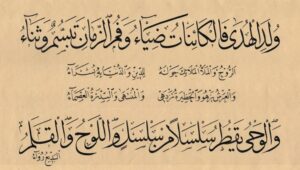 ولد الهدى فالكائنات ضياء وفم الزمان تبسم وثناء
الروح والملأ الملائك حوله للدين والدنيا به بشراء
والعرش يزهو والحظيرة تزدهي والمنتهى والسدرة العصماء
والوحي يقطر سلسلا من سلسل واللوح والقلم
البديع رواء